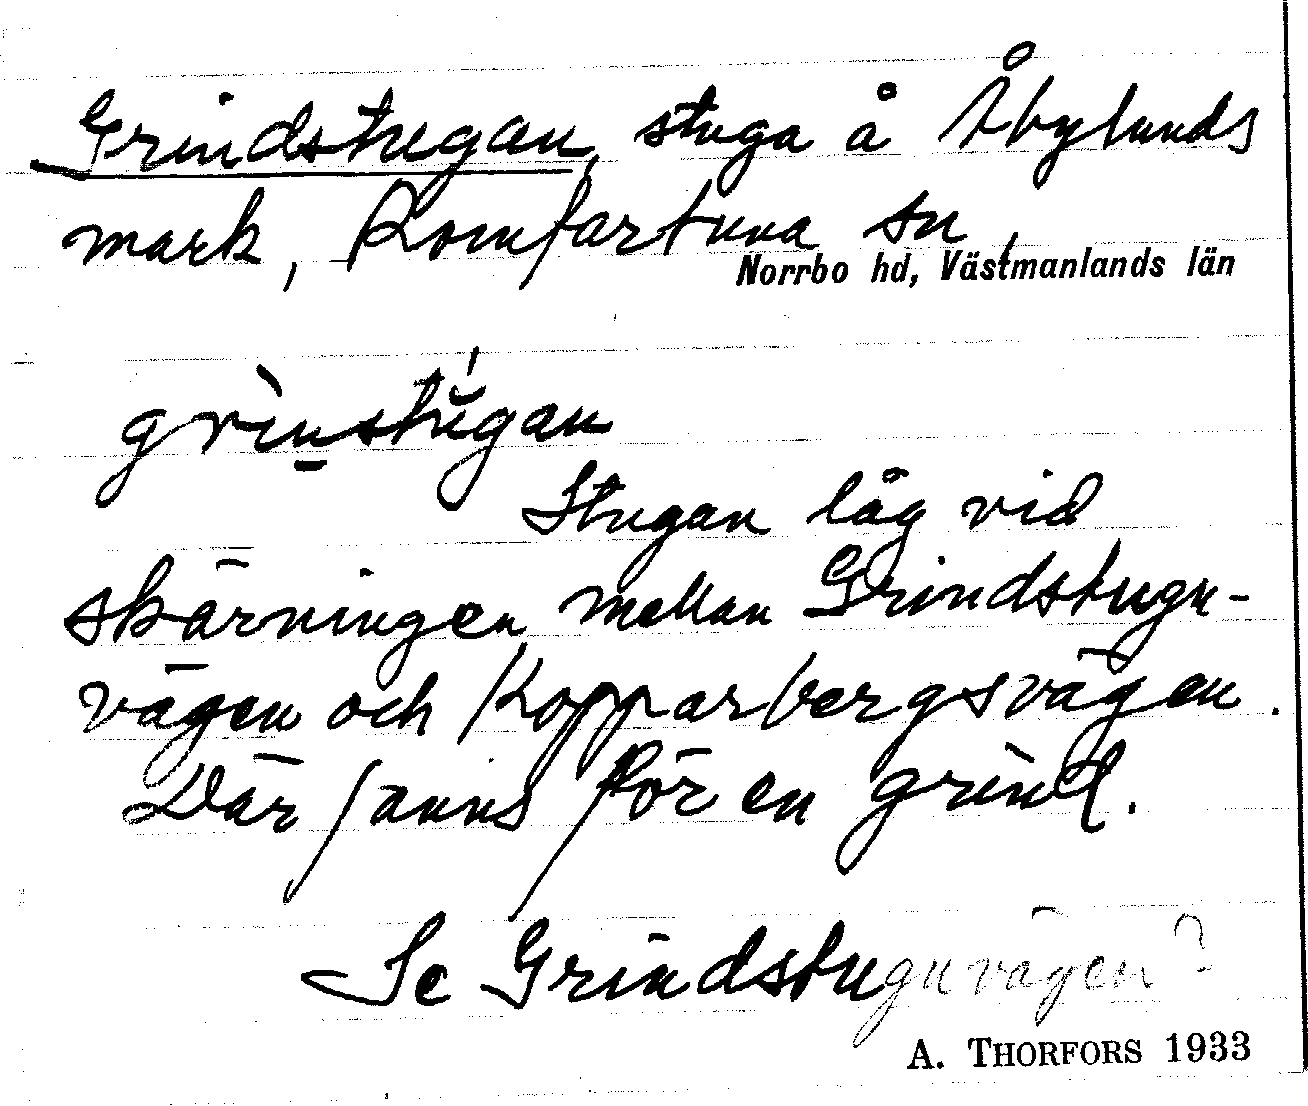 Grindstugan, stuga å Åbylunds
mark, Romfartuna sn,
Norrbo hd, Västmanlands län
grìnstúgan
Stugan låg vid
skärningen mellan Grindstugu-
vägen och Kopparbergsvägen.
Där fanns för en grind.
Se Grindstuguvägen?
A. THORFORS 1933